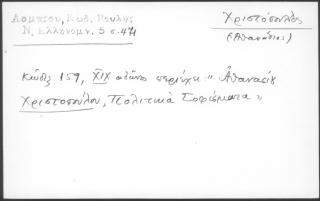 Λάμπρου, Κωδ. Βουλης
Ν. Ελληνομν. 5 σ. 471
Χριστόπουλος
(Αθανάσιος)
Κώδιξ 159, XIX αἰῶνος περιέχει "Αθανασίου
Χριστοπούλου, Πολιτικὰ Σοφίσματα"